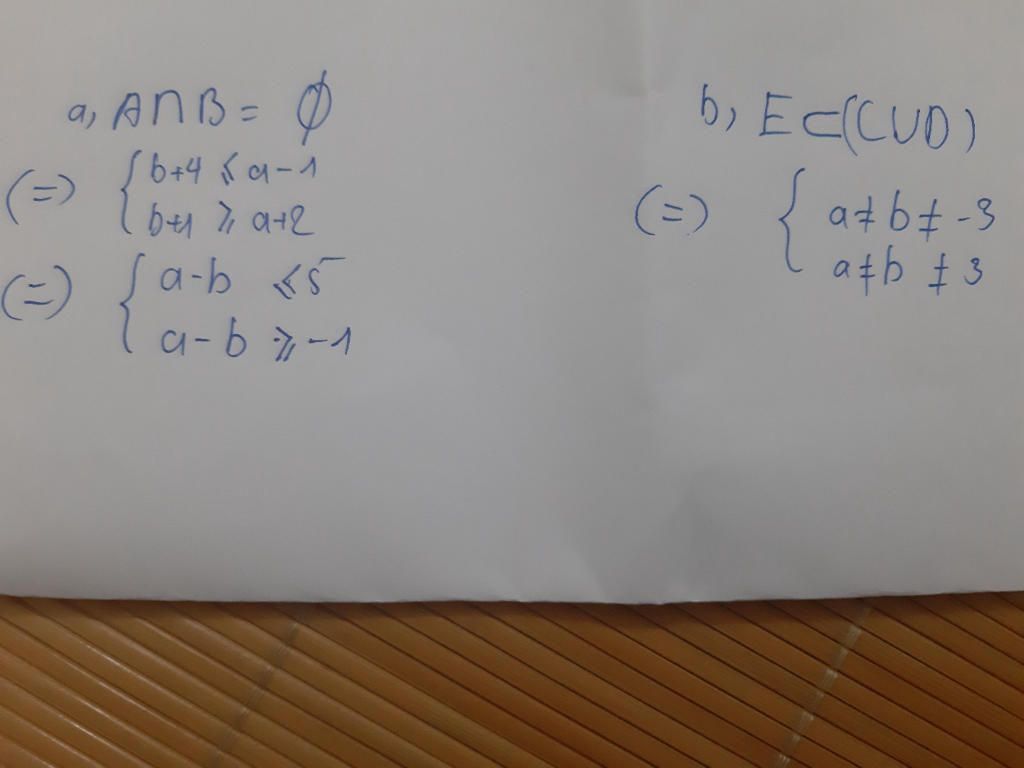 a, A∩B = ∅
(=) { b+4 ⩽ a-1
b+1 ⩾ a+2
(=) { a-b ⩽ 5
a-b ⩾ -1
b, E⊂(C∪D)
(=) { a≠b≠-3
a≠b ≠3